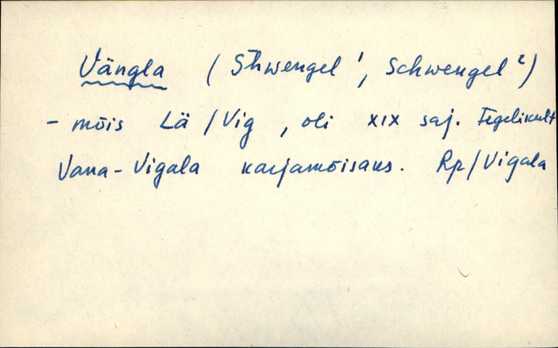 Vängla ( Shwengel ¹, Schwengel ²)
- mõis Lä / Vig , oli XIX saj. Tegelikult
Vana-Vigala karjamõisaks. Rp/Vigala